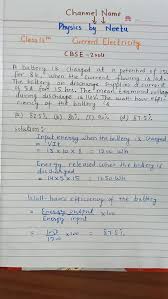 Channel Name
Physics by Neetu
Class 12th Current Electricity
CBSE - 
A battery is charged at a potential of 15V
for 8h, when the current flowing is 10A.
The battery on discharge supplies a current
of 5A for 15 hrs. The mean terminal voltage
during discharge is 14V. The watt-hour effici-
ency of the battery is
(a) 82.5% (b) 80% (c) 90% (d) 87.5%
Solution:
Input energy when the battery is charged
= VIt
= 15 × 10 × 8 = 1200 Wh
Energy released when the battery is
discharged
= 14 × 5 × 15 = 1050 Wh
Watt-hour efficiency of the battery
= Energy output × 100
Energy input
= 1050 × 100 = 87.5%
1200